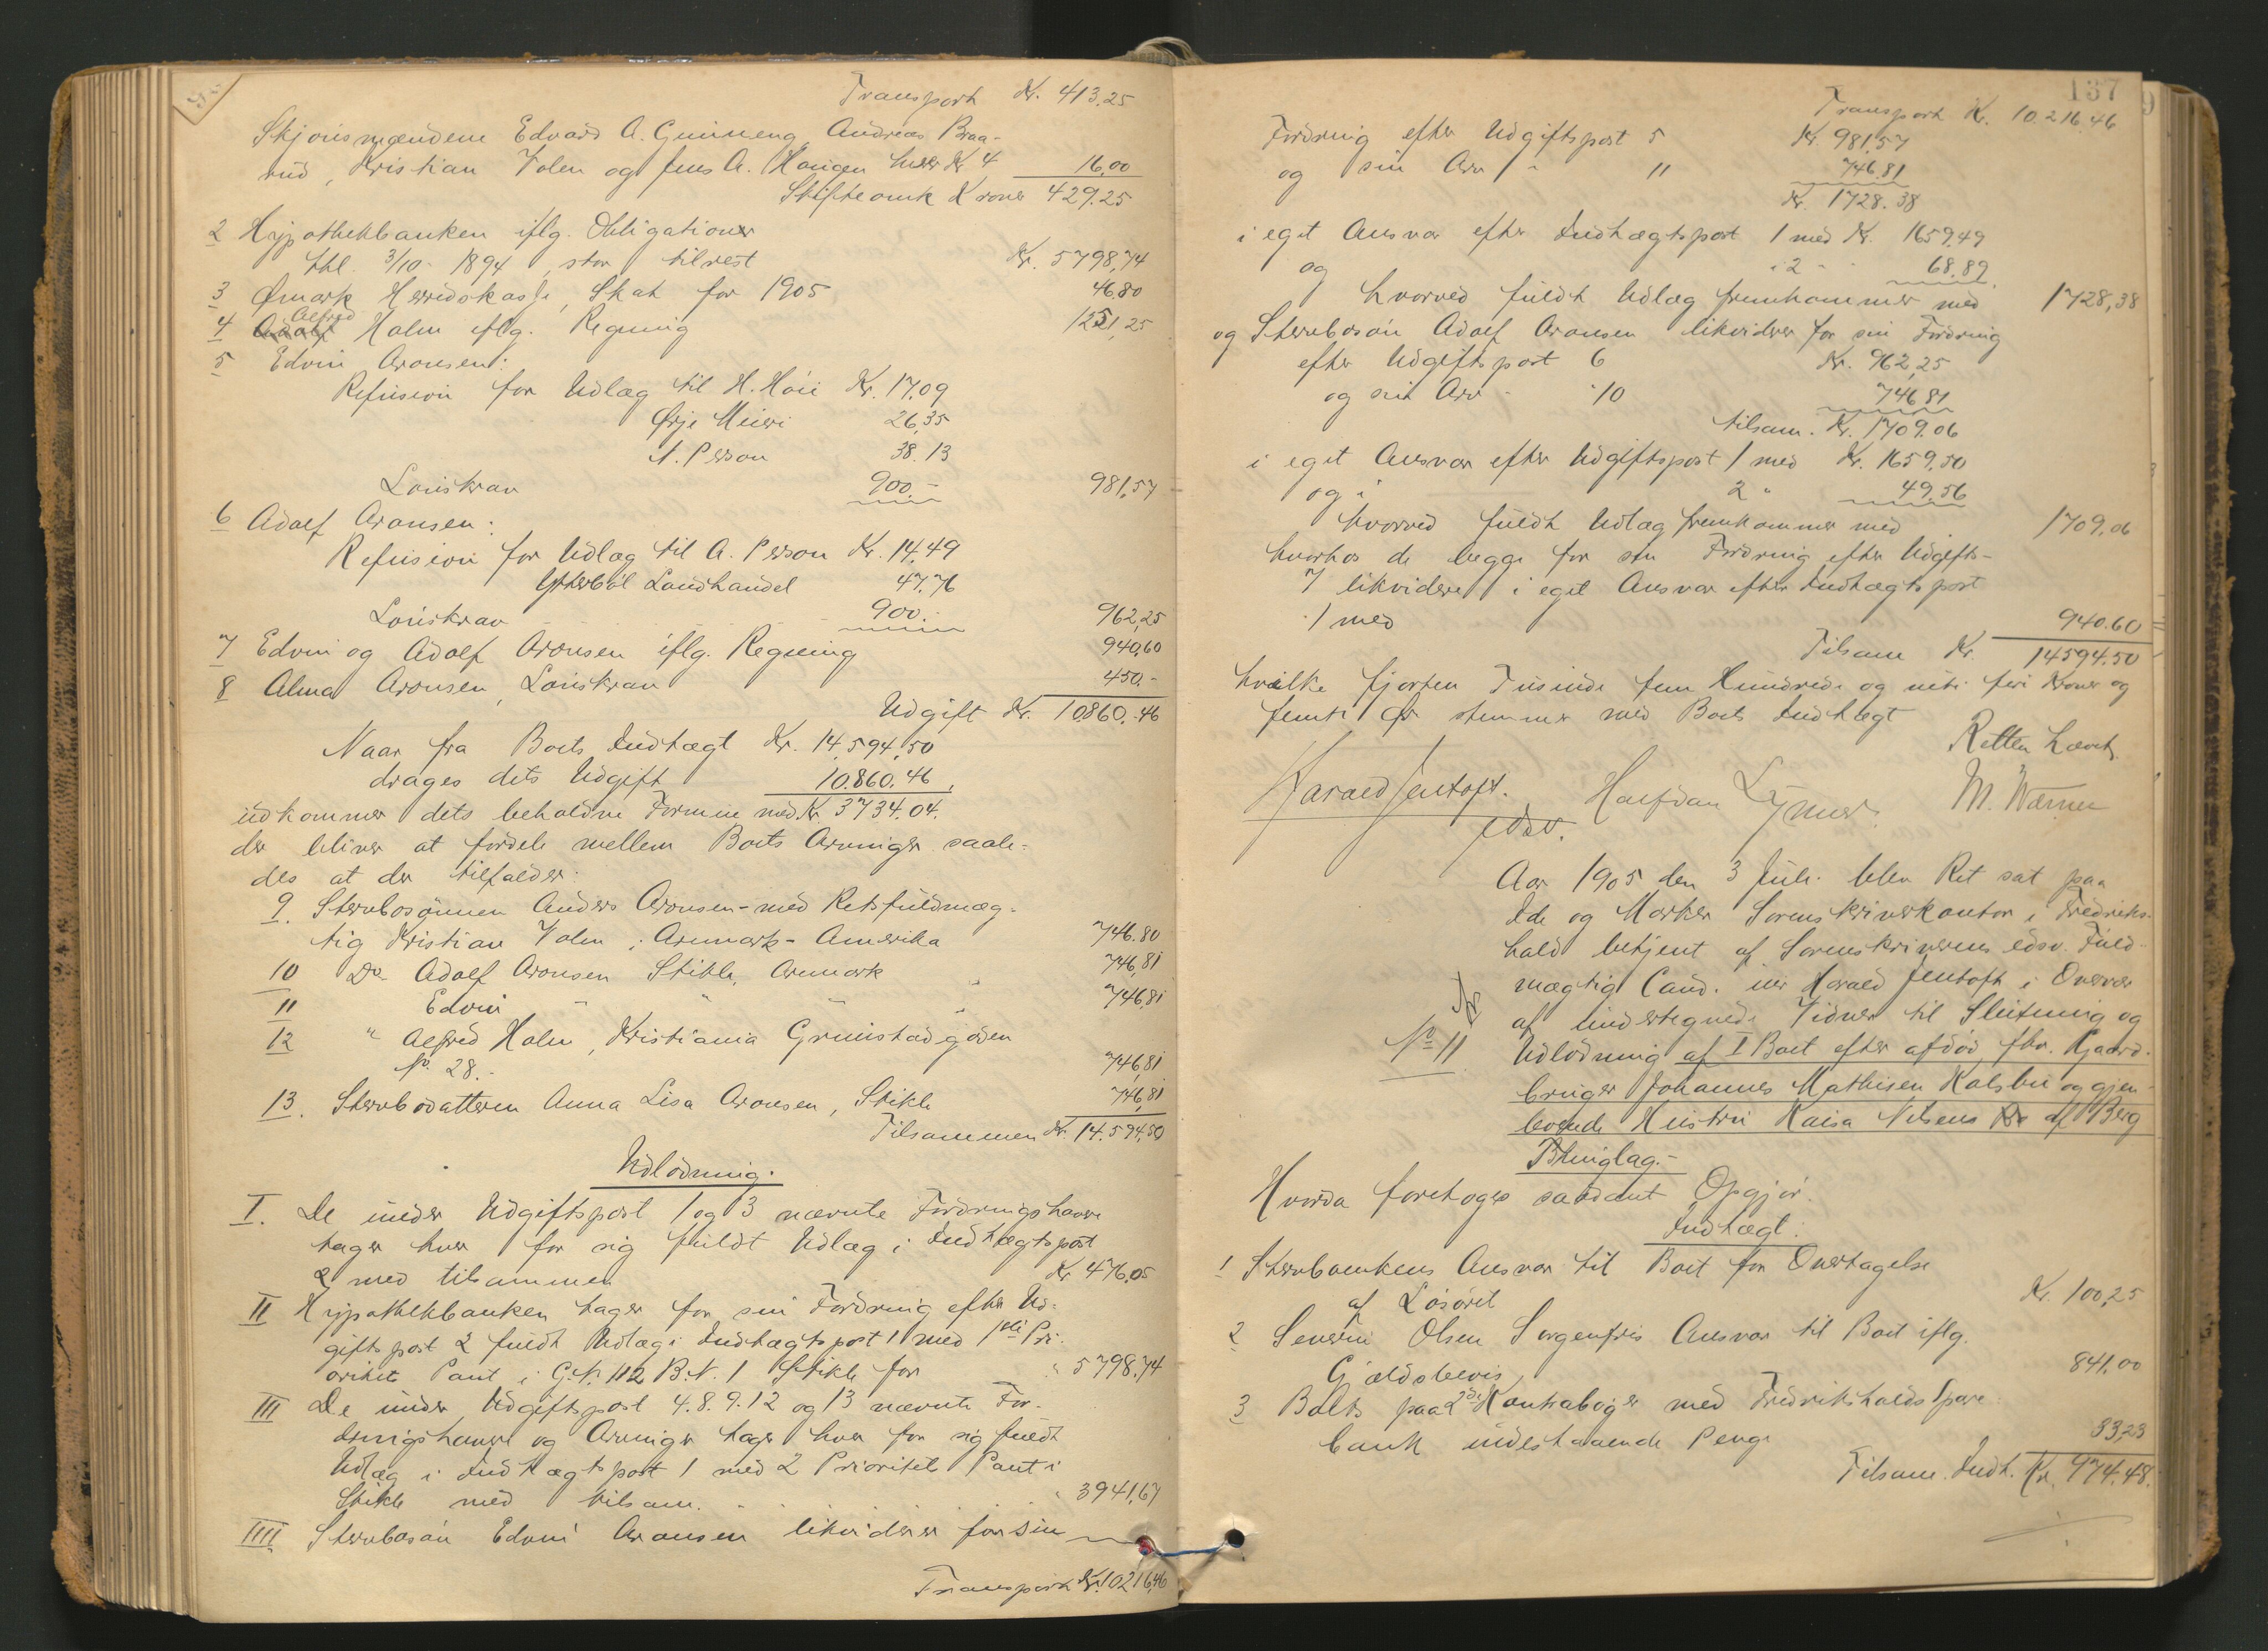 Transport Kr. 413.25
Skjönsmændene Edvard A. Gunneng, Andreas Braa-
rud, Kristian Volen og Jens A. Haugen hver Kr 4 16,00
Skifteomk Kroner 429.25
2 Hypothekbanken iflg. Obligationer
thl. 3/10 - 1894, stor tilrest Kr. 5798,74
3 Ømark Herredskasse, Skat for 1905 46.80
4 Alfred Holm iflg. Regning 1251,25
5 Edvin Aronsen:
Refusion for Udlæg til H. Höie Kr. 17.09
Ørje Meieri 26,35
A. Person 38.13
Lönskrav 900.- 981,57
6 Adolf Aronsen:
Refusion for Udlæg til A. Person Kr. 14.49
Ytterböl Landhandel 47.76
Lönskrav 900.- 962,25
7 Edvin og Adolf Aronsen iflg. Regning 940,60
8 Alma Aronsen, Lönskrav 450.-
Udgift Kr. 10860.46
Naar fra Boets Indtægt Kr. 14,594,50
drages dets Udgift 10.860.46
udkommer dets beholdne Formue med Kr. 3734.04.
der bliver at fordele mellem Boets Arvinger saale-
des at der tilfalder:
9. Stervbosönnen Anders Aronsen - med Retsfuldmæg-
tig Kristian Volen, Aremark - Amerika 746.80
10 Do. Adolf Aronsen Stikle, Aremark 746,81
11 Edvin " " " 746,81
12 " Alfred Holm, Kristiania Grimstadgaden
No. 28.- 746,81
13. Stervbodatteren Anna Lisa Aronsen, Stikle 746,81
Tilsammen Kr. 14.594,50
Udlodning.
I. De under Udgiftspost 1 og 3 nævnte Fordringshavere
tager hver for sig fuldt Udlæg i Indtægtspost
2 med tilsammen Kr 476,05
II Hypothekbanken tager for sin Fordring efter Ud-
giftspost 2 fuldt Udlæg i Indtægtspost 1 med 1ste Pri-
oritet Pant i G.N. 112 B.N. 1 Stikle for " 5798.74
III De under Udgiftspost 4. 8. 9. 12 og 13 nævnte For-
dringshavere og Arvinger tager hver for sig fuldt
Udlæg i Indtægtspost 1 med 2 Prioritet Pant i
Stikle med tilsam. " 3941,67
IIII Stervbosön Edvin Aronsen likviderer for sin
Transport Kr. 10216,46
137
Transport Kr. 10.216.46
Fordring efter Udgiftspost 5 Kr. 981,57
og sin Arv " 11 746.81
Kr. 1728.38
i eget Ansvar efter Indtægtspost 1 med Kr. 1659,49
og " 2 " 68.89
hvorved fuldt Udlæg fremkommer med 1728,38
og Stervbosön Adolf Aronsen likviderer for sin Fordring
efter Udgiftspost 6 Kr. 962,25
og sin Arv - " 10 746,81
tilsam. Kr. 1709.06
i eget Ansvar efter Udgiftspost 1 med Kr. 1659,50
og i 2 " 49.56
hvorved fuldt Udlæg fremkommer med 1709,06
hvorhos de begge for sin Fordring efter Udgifts-
7 likviderer i eget Ansvar efter Indtægtspost
1 med 940.60
Tilsam Kr. 14594.50
hvilke fjorten Tusinde fem Hundrede og niti firi Kroner og
femti Øre stemmer med Boets Indtægt
Retten hævet.
Harald Jentoft. Halfdan Lymer M. Warner
edsv.
Aar 1905 den 3 Juli blev Ret sat paa
Ide og Marker Sorenskriverkontor i Fredriks-
hald betjent af Sorenskriverens edsv. Fuld-
mægtig Cand. jur Harald Jentoft i Overvær
af undertegnede Vidner til Slutning og
No 11 Udlodning af I Boet efter afdöd fhv. Gaard-
bruger Johannes Mathisen Kalsbu og gjen-
levende Hustru Kaisa Nilsens af Berg
Thinglag.-
Hvorda foretoges saadant Opgjör.
Indtægt:
1 Stervboenkens Ansvar til Boet for Overtagelse
af Lösöret Kr. 100,25
2 Severin Olsen Sorgenfris Ansvar til Boet iflg.
Gjældsbevis 841,00
3 Boets paa 2de Kontrabøger med Fredrikshalds Spare-
bank indestaaende Penge 33,23
Tilsam. Indt. Kr. 974.48.